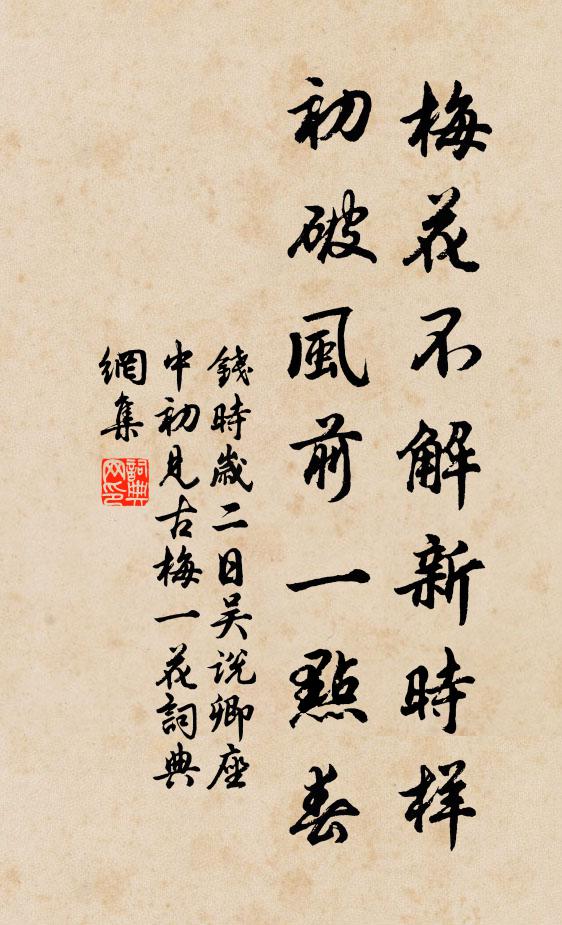 梅花不解新時样
初破風前一點春
錢時歲二日吴说卿座
中初見古梅一花詞典
網集
詞典网印